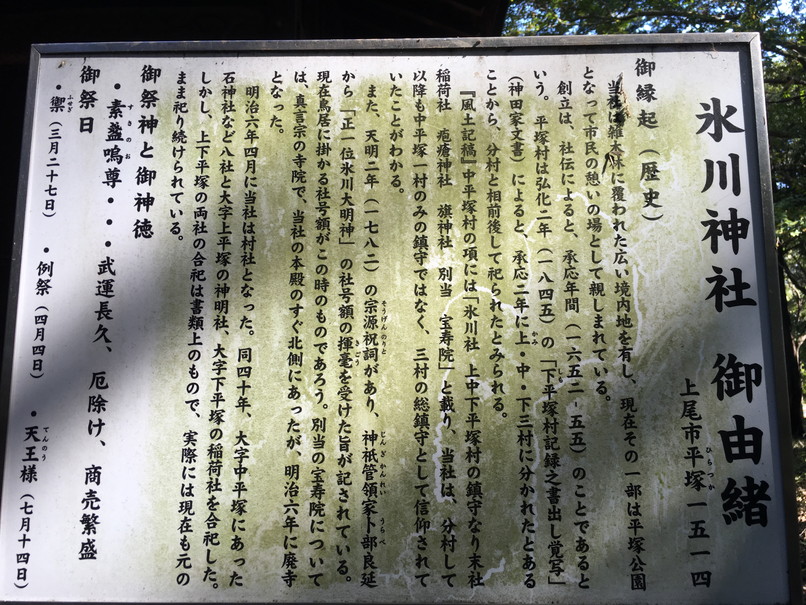 氷川神社 御由緒
上尾市平塚一五一四
ひらつか
御縁起（歴史）
当社は雑木林に覆われた広い境内地を有し、現在その一部は平塚公園
となって市民の憩いの場として親しまれている。
創立は、社伝によると、承応年間（一六五二-五五）のことであると
いう。平塚村は弘化二年（一八四五）の「下平塚村記録之書出し覚写」
（神田家文書）によると、承応二年に上・中・下三村に分かれたとある
かみ しも
ことから、分村と相前後して祀られたとみられる。
『風土記稿』中平塚村の項には「氷川社 上中下平塚村の鎮守なり末社
稲荷社 疱瘡神社 旗神社 別当 宝寿院」と載り、当社は、分村して
以降も中平塚一村のみの鎮守ではなく、三村の総鎮守として信仰されて
いたことがわかる。
また、天明二年（一七八二）の宗源祝詞があり、神祇管領家卜部良延
そうげんのりと じんぎかんれい うらべ
から「正一位氷川大明神」の社号額の揮毫を受けた旨が記されている。
きごう
現在鳥居に掛かる社号額がこの時のものであろう。別当の宝寿院について
は、真言宗の寺院で、当社の本殿のすぐ北側にあったが、明治六年に廃寺
となった。
明治六年四月に当社は村社となった。同四十年、大字中平塚にあった
石神社など八社と大字上平塚の神明社、大字下平塚の稲荷社を合祀した。
しかし、上下平塚の両社の合祀は書類上のもので、実際には現在も元の
まま祀り続けられている。
御祭神と御神徳
・素盞嗚尊・・・武運長久、厄除け、商売繁盛
すさのお
御祭日
・禦（三月二十七日） ・例祭（四月四日） ・天王様（七月十四日）
ふせぎ てんのう